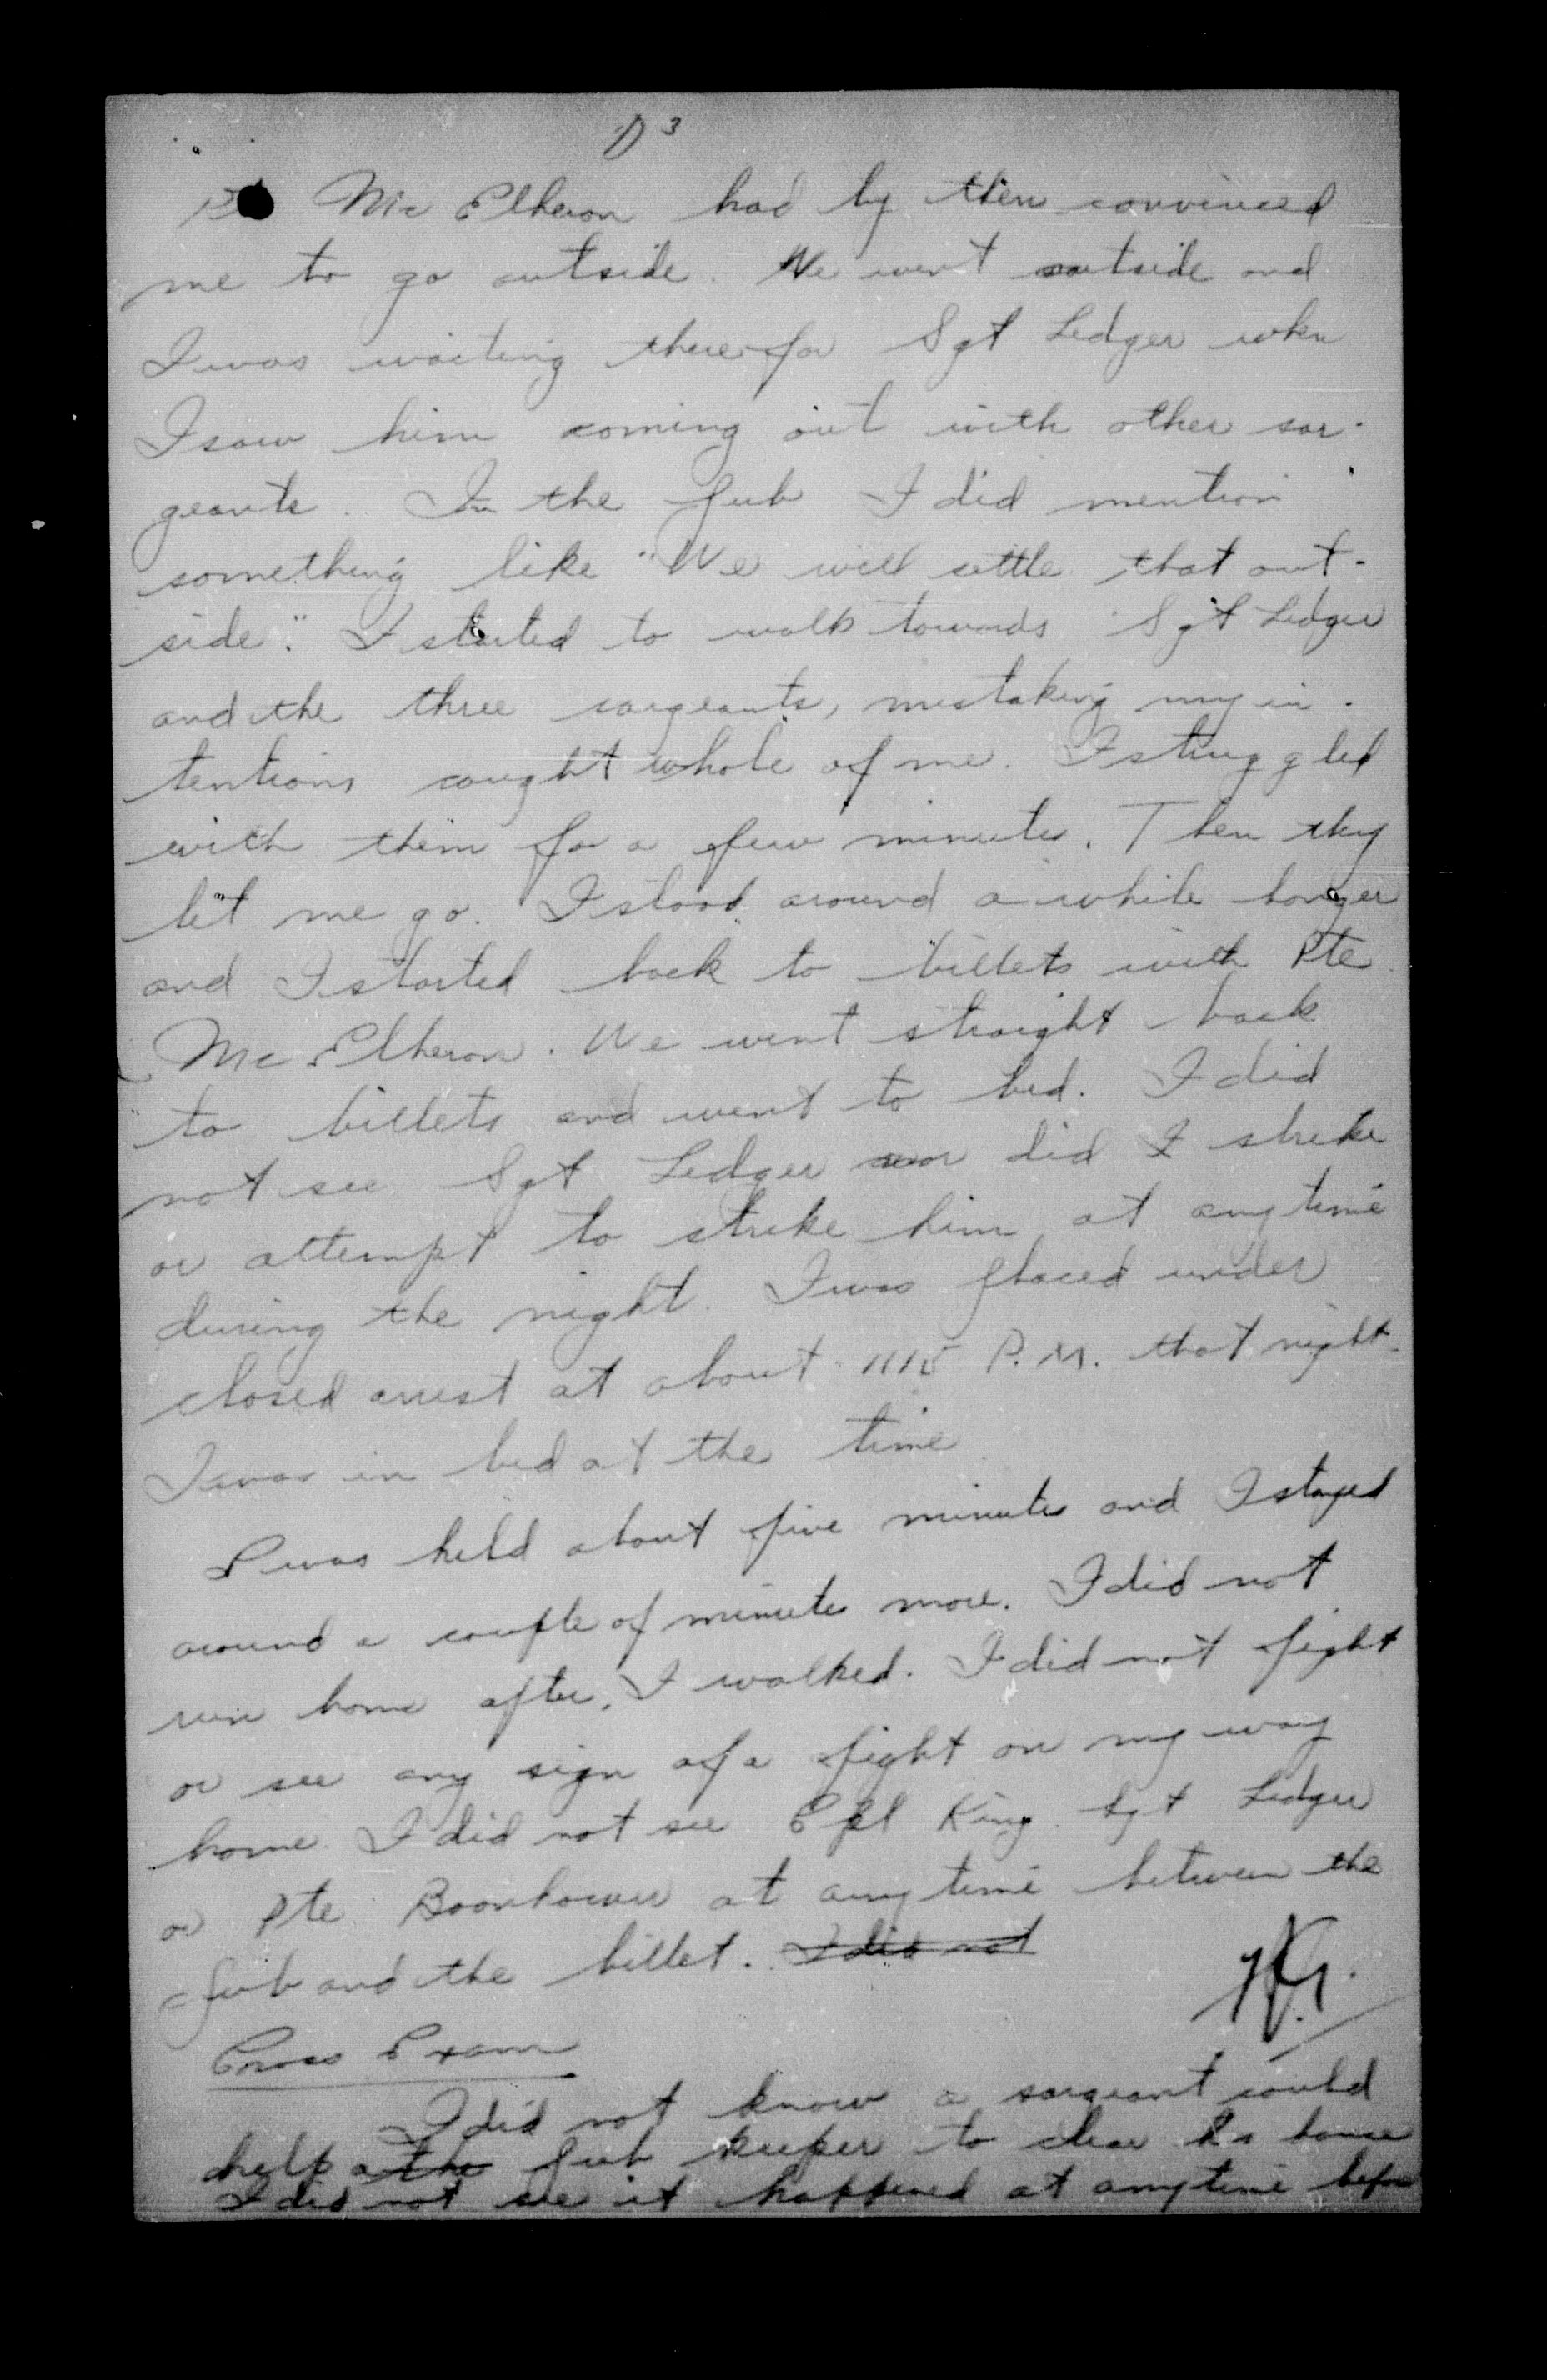 D3
Pte Mc Elheron had by then convinced
me to go outside. We went outside and
I was waiting there for Sgt Ledger when
I saw him coming out with other sar-
geants. In the pub I did mention
something like "We will settle that out-
side". I started to walk towards Sgt Ledger
and the three sargeants, mistaking my in-
tentions caught whole of me. I struggled
with them for a few minutes. Then they
let me go. I stood around a while longer
and I started back to billets with Pte
Mc Elheron. We went straight back
to billets and went to bed. I did
not see Sgt Ledger nor did I strike
or attempt to strike him at anytime
during the night. I was placed under
closed arrest at about 1115 P.M. that night.
I was in bed at the time
I was held about five minutes and I stayed
around a couple of minutes more. I did not
run home after, I walked. I did not fight
or see any sign of a fight on my way
home. I did not see Cpl King Sgt Ledger
or Pte Boonhower at anytime between the
pub and the billet. I did not
Cross Exam
I did not know a sargeant could
help a the pub keeper to clear his house
I did not see it happened at anytime before